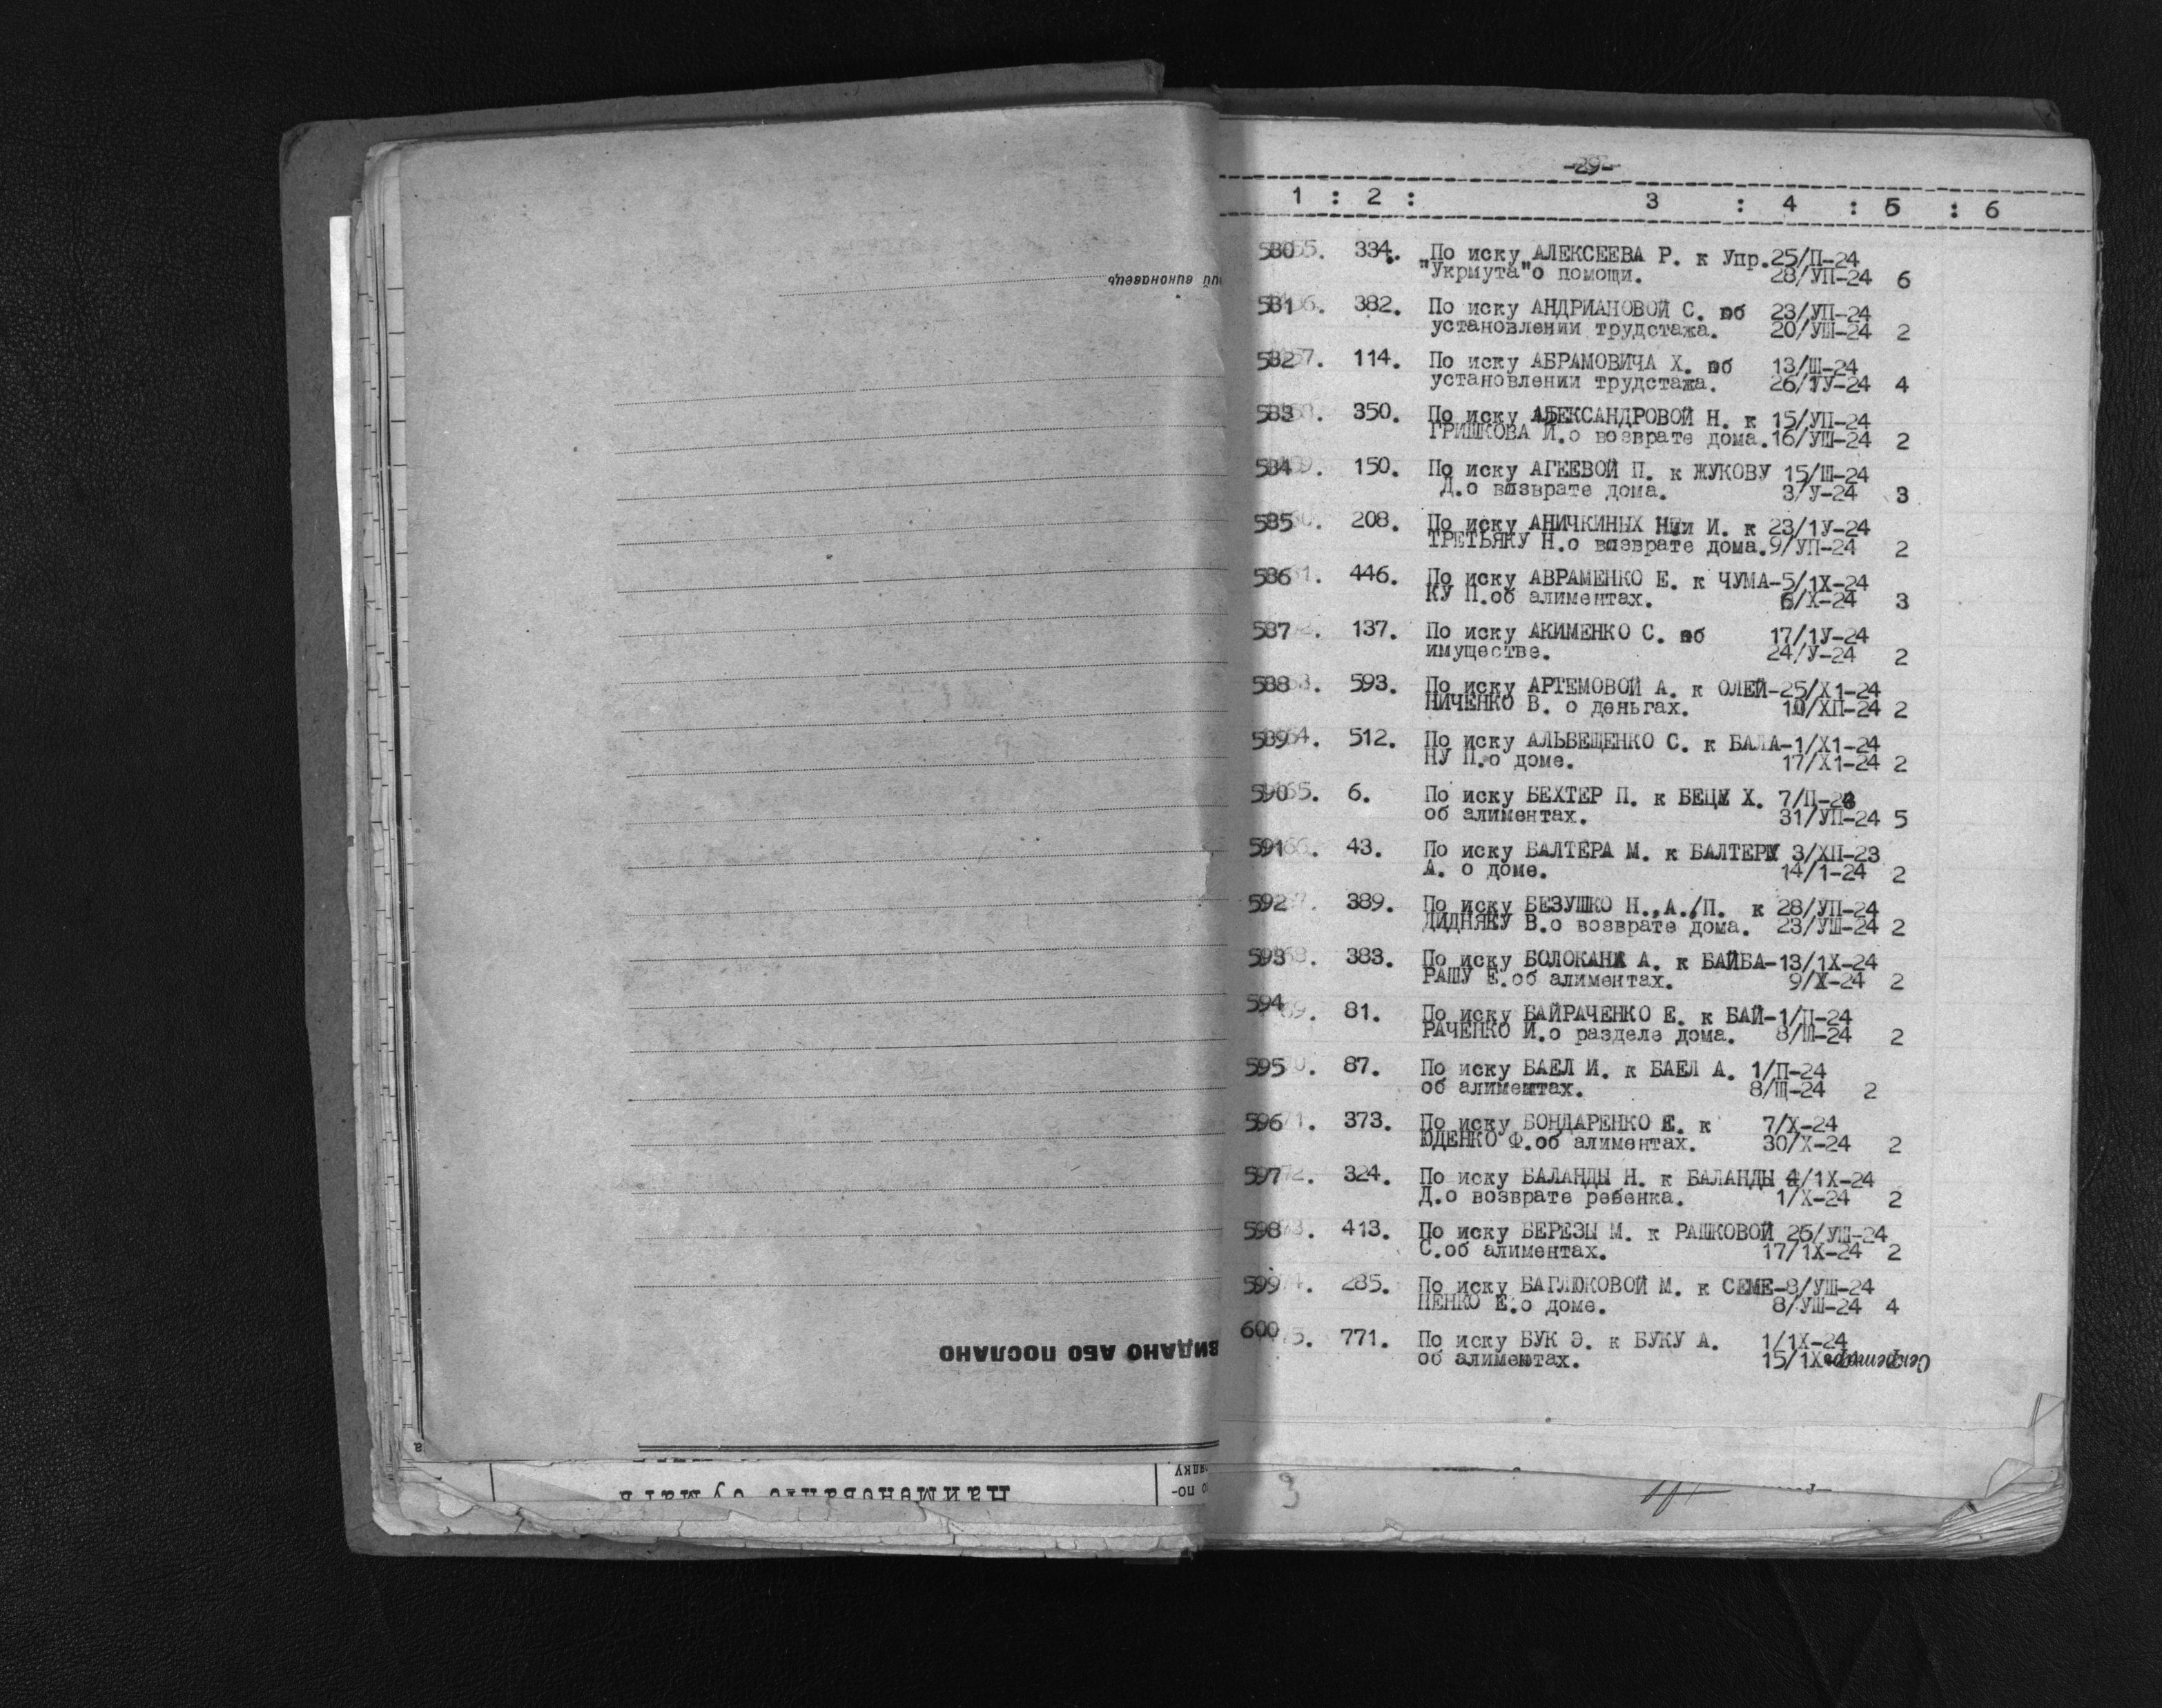 -29-
1 : 2 : 3 : 4 : 5 : 6
580. 334. По иску АЛЕКСЕЕВА Р. к Упр.25/П-24
"Укрмута"о помощи. 28/УП-24 6
581. 382. По иску АНДРИАНОВОЙ С. об 23/УП-24
установлении трудстажа. 20/УШ-24 2
582. 114. По иску АБРАМОВИЧА Х. об 13/Ш-24
установлении трудстажа. 26/1У-24 4
583. 350. По иску АЛЕКСАНДРОВОЙ Н. к 15/УП-24
ГРИШКОВА И.о возврате дома.16/УШ-24 2
584. 150. По иску АГЕЕВОЙ П. к ЖУКОВУ 15/Ш-24
Д.о возврате дома. 3/У-24 3
585. 208. По иску АНИЧКИНЫХ Н.и И. к 23/1У-24
ТРЕТЬЯКУ Н.о возврате дома.9/УП-24 2
586. 446. По иску АВРАМЕНКО Е. к ЧУМА-5/1Х-24
КУ П.об алиментах. 6/Х-24 3
587. 137. По иску АКИМЕНКО С. об 17/1У-24
имуществе. 24/У-24 2
588. 593. По иску АРТЕМОВОЙ А. к ОЛЕЙ-25/Х1-24
НИЧЕНКО В. о деньгах. 10/ХП-24 2
589. 512. По иску АЛЬВЕЩЕНКО С. к БАЛА-1/Х1-24
НУ П.о доме. 17/Х1-24 2
590. 6. По иску БЕХТЕР П. к БЕЦУ Х. 7/П-24
об алиментах. 31/УП-24 5
591. 43. По иску БАЛТЕРА М. к БАЛТЕРУ 3/ХП-23
А. о доме. 14/1-24 2
592. 389. По иску БЕЗУШКО Н.,А.,П. к 28/УП-24
ДИДНЯКУ В.о возврате дома. 23/УШ-24 2
593. 383. По иску БОЛОКАНА А. к БАЙБА-13/1Х-24
РАШУ Е.об алиментах. 9/Х-24 2
594. 81. По иску БАЙРАЧЕНКО Е. к БАЙ-1/П-24
РАЧЕНКО И.о разделе дома. 8/Ш-24 2
595. 87. По иску БАЕЛ И. к БАЕЛ А. 1/П-24
об алиментах. 8/Ш-24 2
596. 373. По иску БОНДАРЕНКО Е. к 7/Х-24
ЮДЕНКО Ф.об алиментах. 30/Х-24 2
597. 324. По иску БАЛАНДЫ Н. к БАЛАНДЫ 4/1Х-24
Д.о возврате ребенка. 1/Х-24 2
598. 413. По иску БЕРЕЗЫ М. к РАШКОВОЙ 26/УШ-24
С.об алиментах. 17/1Х-24 2
599. 285. По иску БАГЛЮКОВОЙ М. к СЕМЕ-8/УШ-24
НЕНКО Е.о доме. 8/УШ-24 4
600. 771. По иску БУК Э. к БУКУ А. 1/1Х-24
об алиментах. 15/1Х
Секретарь
виконавець
ВИДАНО АБО ПОСЛАНО